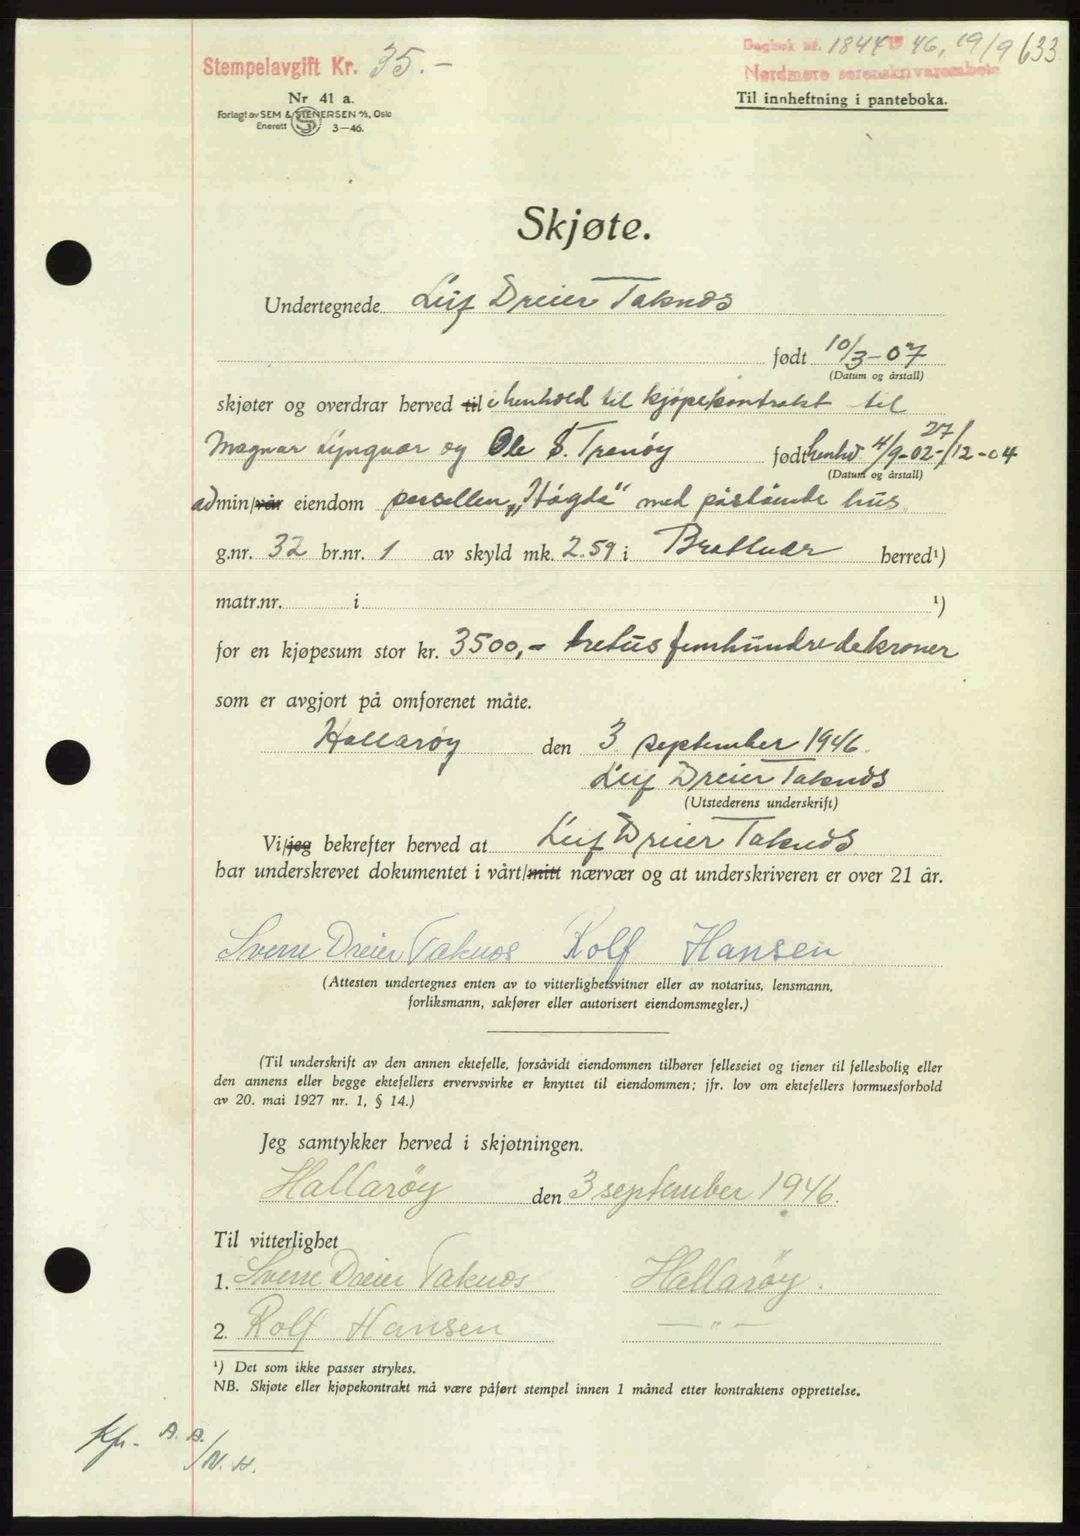 Stempelavgift Kr. 35.-
Dagbok nr. 1844 1946, 19/9 633
Nordmøre sorenskriverembete
Nr 41 a.
Forlagt av SEM & STENERSEN A/S, Oslo
Enerett S 3-46.
Til innheftning i panteboka.
Skjøte.
Undertegnede Leif Dreier Taknes
født 10/3-07
(Datum og årstall)
skjøter og overdrar herved til i henhold til kjøpekontrakt til
Magnar Lyngvær og Ole S. Tranøy født henhv. 4/9-02-27/12-04
(Datum og årstall)
admin/vår eiendom parsellen "Høgda" med påstående hus
g.nr. 32 br.nr. 1 av skyld mk. 2.59 i Brattvær herred¹)
matr.nr. i ¹)
for en kjøpesum stor kr. 3500,- tretusfemhundrede kroner
som er avgjort på omforenet måte.
Hallarøy den 3 september 1946.
Leif Dreier Taknes
(Utstederens underskrift)
Vi/jeg bekrefter herved at Leif Dreier Taknes
har underskrevet dokumentet i vårt/mitt nærvær og at underskriveren er over 21 år.
Sverre Dreier Taknes Rolf Hansen
(Attesten undertegnes enten av to vitterlighetsvitner eller av notarius, lensmann,
forliksmann, sakfører eller autorisert eiendomsmegler.)
(Til underskrift av den annen ektefelle, forsåvidt eiendommen tilhører felleseiet og tjener til fellesbolig eller
den annens eller begge ektefellers ervervsvirke er knyttet til eiendommen; jfr. lov om ektefellers formuesforhold
av 20. mai 1927 nr. 1, § 14.)
Jeg samtykker herved i skjøtningen.
Hallarøy den 3 september 1946.
Til vitterlighet
1. Sverre Dreier Taknes Hallarøy.
2. Rolf Hansen — " —
¹) Det som ikke passer strykes.
NB. Skjøte eller kjøpekontrakt må være påført stempel innen 1 måned etter kontraktens opprettelse.
Kp. A.A.
/N.H.